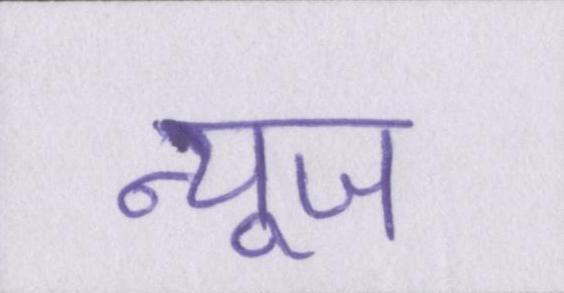 न्यूज